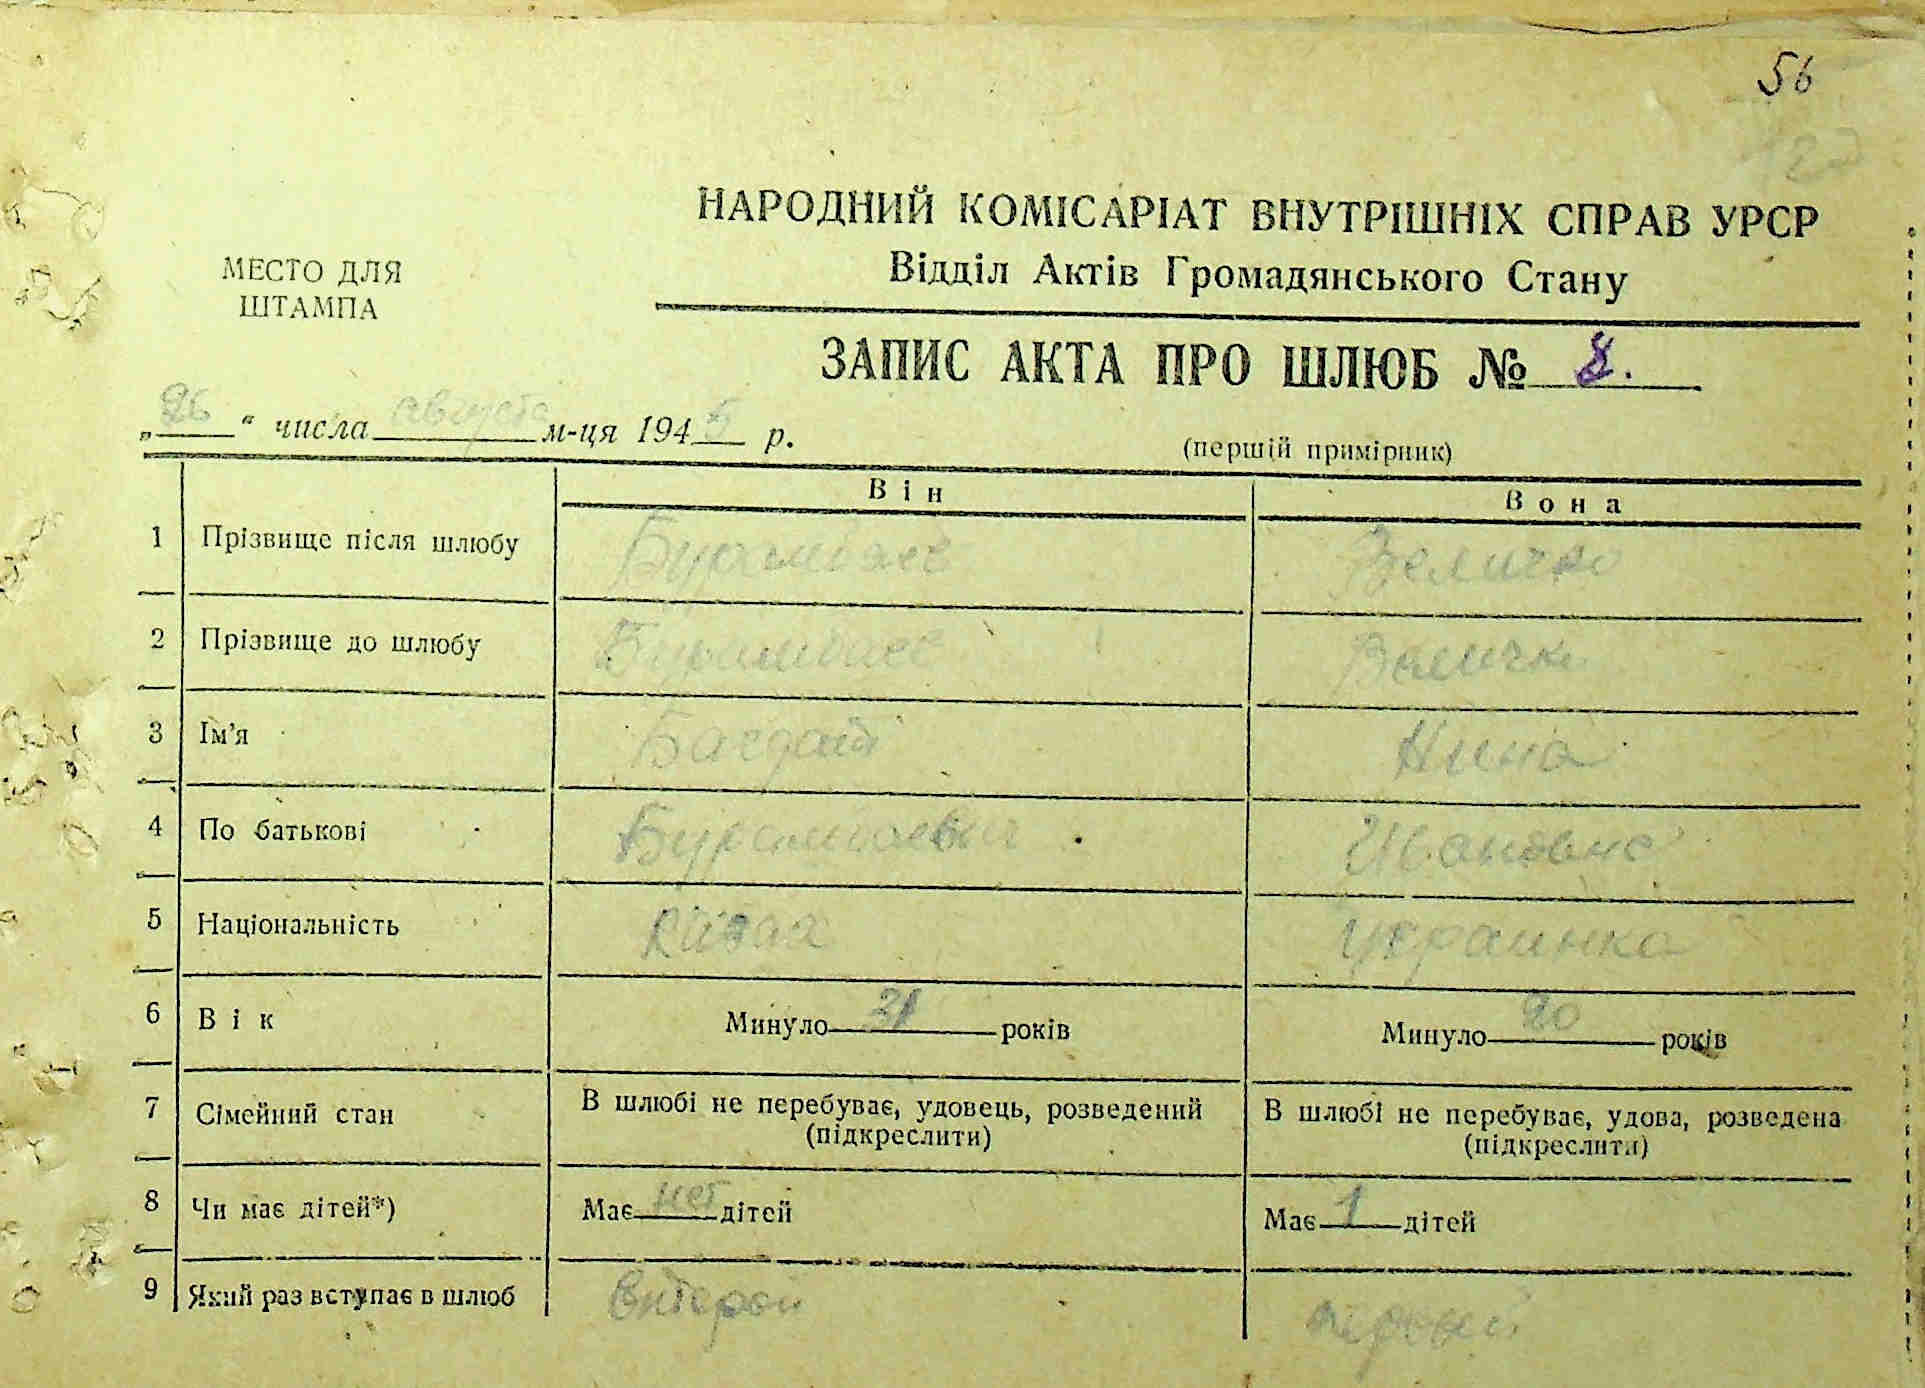 56
НАРОДНИЙ КОМІСАРІАТ ВНУТРІШНІХ СПРАВ УРСР
Відділ Актів Громадянського Стану
МЕСТО ДЛЯ
ШТАМПА
ЗАПИС АКТА ПРО ШЛЮБ № 8.
„26“ числа августа м-ця 1945 р.
(першій примірник)
Він Вона
1 Прізвище після шлюбу Величко
2 Прізвище до шлюбу Величко
3 Ім'я Багдат Нина
4 По батькові Ивановна
5 Національність Казах Украинка
6 Вік Минуло 31 років Минуло 20 років
7 Сімейний стан В шлюбі не перебуває, удовець, розведений В шлюбі не перебуває, удова, розведена
(підкреслити) (підкреслити)
8 Чи має дітей*) Має нет дітей Має 1 дітей
9 Який раз вступає в шлюб первый